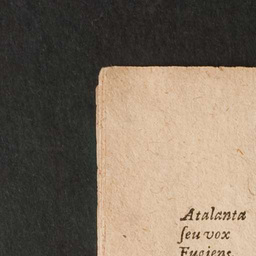 Atalanta
ſeu vox
Fugiens